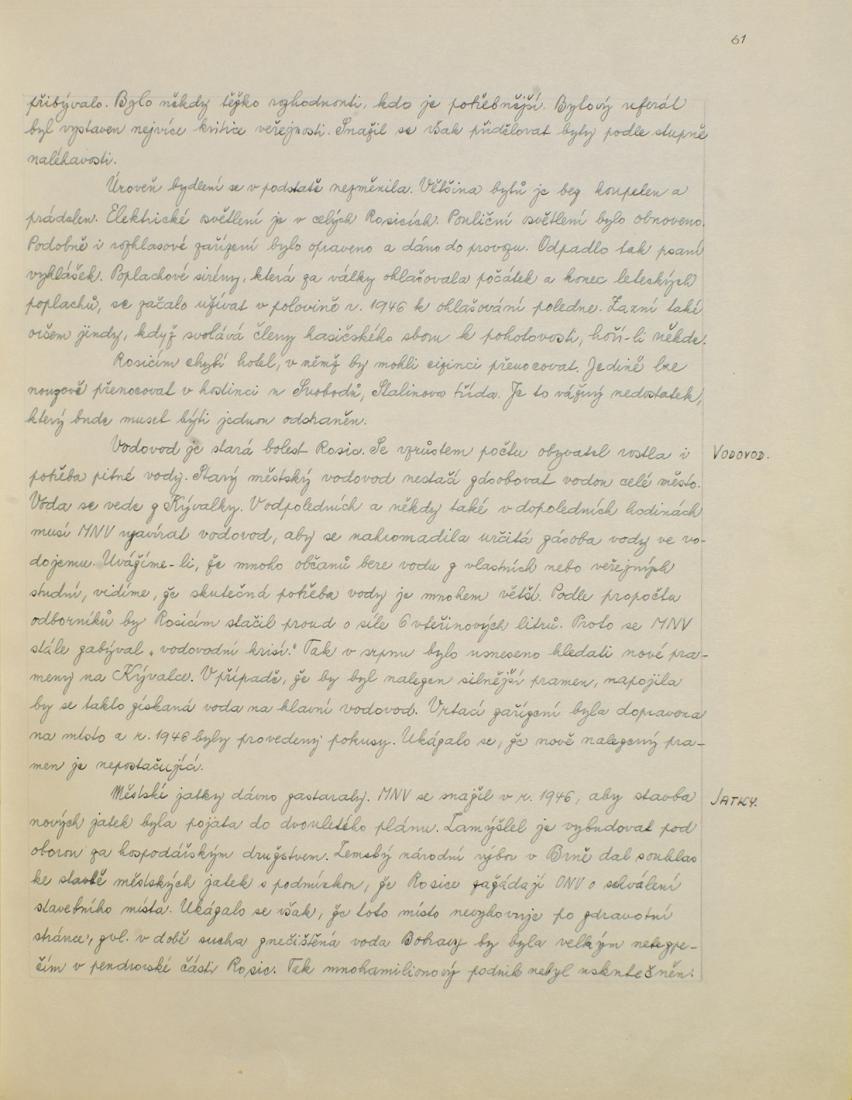 61
přibývalo. Bylo někdy těžko rozhodnouti, kdo je potřebnější. Bytový referát
byl vystaven nejvíce kritice veřejnosti. Snažil se však přidělovat byty podle stupně
naléhavosti.
Úroveň bydlení se v podstatě nezměnila. Většina bytů je bez koupelen a
prádelen. Elektrické osvětlení je v celých Rosicích. Pouliční osvětlení bylo obnoveno.
Podobně i rozhlasové zařízení bylo opraveno a dáno do provozu. Odpadlo tak psaní
vyhlášek. Poplachové sirény, která za války ohlašovala počátek a konec leteckých
poplachů, se začalo užívat v polovině r. 1946 k ohlašování poledne. Zazní také
ovšem jindy, když svolává členy hasičského sboru k pohotovosti, hoří-li někde.
Rosicím chybí hotel, v němž by mohli cizinci přenocovat. Jedině lze
nouzově přenocovat v hostinci u Svobodů, Stalinova třída. Je to vážný nedostatek,
který bude muset býti jednou odstraněn.
Vodovod je stará bolest Rosic. Se vzrůstem počtu obyvatel rostla i
VODOVOD.
potřeba pitné vody. Starý městský vodovod nestačí zásobovat vodou celé město.
Voda se vede z Kývalky. V odpoledních a někdy také v dopoledních hodinách
musí MNV uzavírat vodovod, aby se nahromadila určitá zásoba vody ve vo-
dojemu. Uvážíme-li, že mnoho občanů bere vodu z vlastních nebo veřejných
studní, vidíme, že skutečná potřeba vody je mnohem větší. Podle propočtu
odborníků by Rosicím stačil proud o síle 6 vteřinových litrů. Proto se MNV
stále zabýval „vodovodní krisí." Tak v srpnu bylo usneseno hledati nové pra-
meny na Kývalce. V případě, že by byl nalezen silnější pramen, napojila
by se takto získaná voda na hlavní vodovod. Vrtací zařízení byla dopravena
na místo a r. 1946 byly provedeny pokusy. Ukázalo se, že nově nalezený pra-
men je nepostačující.
Městské jatky dávno zastaraly. MNV se snažil v r. 1946, aby stavba
JATKY.
nových jatek byla pojata do dvouletého plánu. Zamýšlel je vybudovat pod
oborou za hospodářským družstvem. Zemský národní výbor v Brně dal souhlas
ke stavbě městských jatek s podmínkou, že Rosice zažádají ONV o schválení
stavebního místa. Ukázalo se však, že toto místo nevyhovuje po zdravotní
stránce, zvl. v době sucha znečištěná voda Bobravy by byla velkým nebezpe-
čím v pendrovské části Rosic. Tak mnohamilionový podnik nebyl uskutečněn.